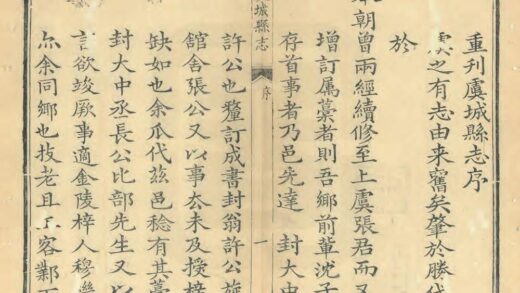 重刊虞城縣志序
虞之有志由来舊矣肇於勝
於
朝曾兩經續修至上虞張君而又
增訂属藁者則吾郷前軰沈子
存首事者乃邑先達 封大中
城縣志
序
一
許公也釐訂成書封翁許公旋
舘舍張公又以事去未及授梓
缺如也余瓜代兹邑稔有其
封大中丞長公比部先生又以
言欲竣厥事適金陵梓人穆
尒余同郷也技老且工客鄴